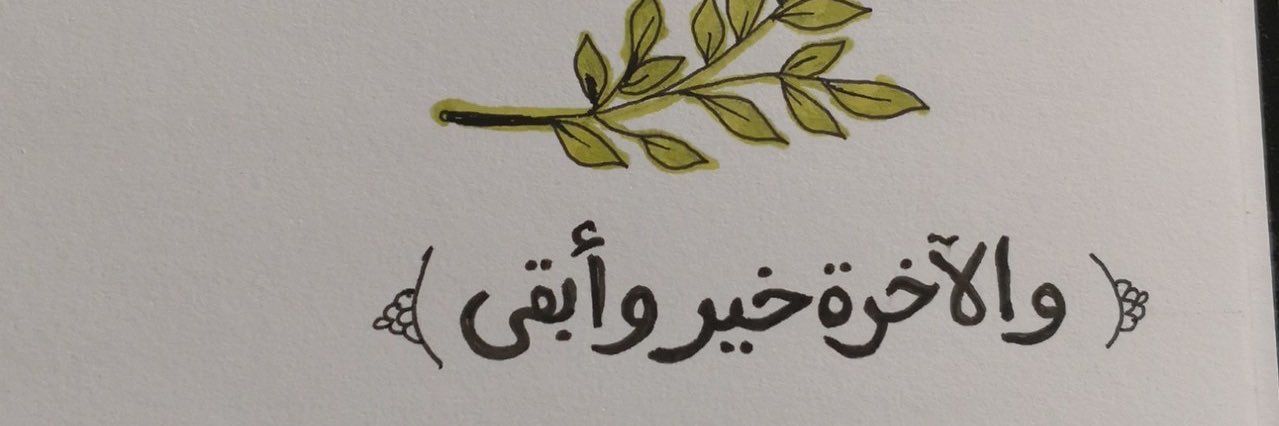 ﴿ والآخرة خير وأبقى ﴾